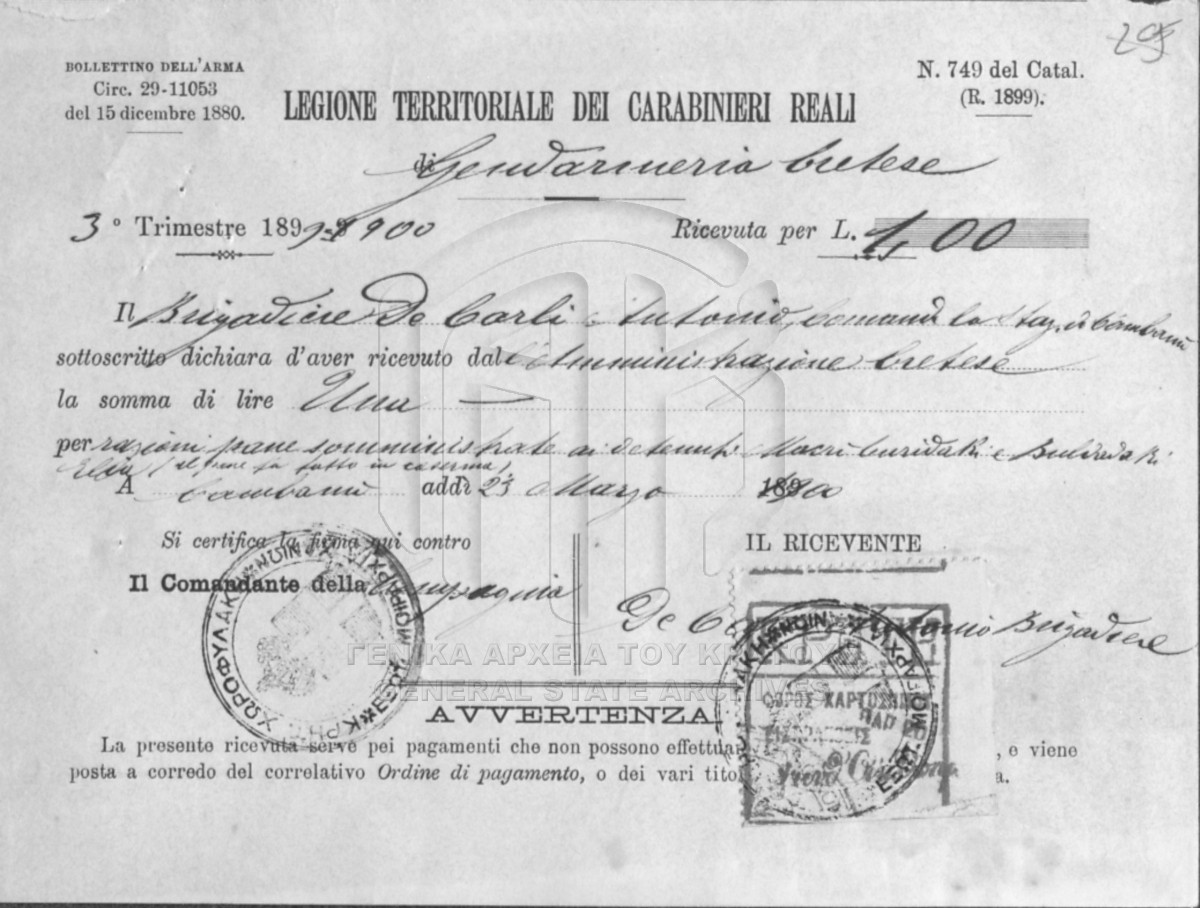 295
BOLLETTINO DELL'ARMA
Circ. 29-11053
del 15 dicembre 1880.
N. 749 del Catal.
(R. 1899).
LEGIONE TERRITORIALE DEI CARABINIERI REALI
di Gendarmeria Cretese
3° Trimestre 1899-1900
Ricevuta per L. 1,00
Il Brigadiere De Carli Antonio, comand la Staz. di Cambanù
sottoscritto dichiara d'aver ricevuto dall'Amministrazione Cretese
la somma di lire Una
per razioni pane somministrate ai detenuti Macri e
(il pane fu fatto in caserma)
A Cambanù addì 23 Marzo 1900
Si certifica la firma qui contro
IL RICEVENTE
Il Comandante della Compagnia
De Antonio Brigadiere
ΧΩΡΟΦΥΛΑΚΗ ΜΟΙΡΑΡΧΙΑ
ΜΟΙΡΑΡΧ
ΦΟΡΟΣ ΧΑΡΤΟΣΗΜ
ΠΑΡ 20
ΓΕΝΙΚΑ ΑΡΧΕΙΑ ΤΟΥ ΚΡΑΤΟΥΣ
GENERAL STATE ARCHIVES
AVVERTENZA
La presente ricevuta serve pei pagamenti che non possono effettuar , e viene
posta a corredo del correlativo Ordine di pagamento, o dei vari titol a.